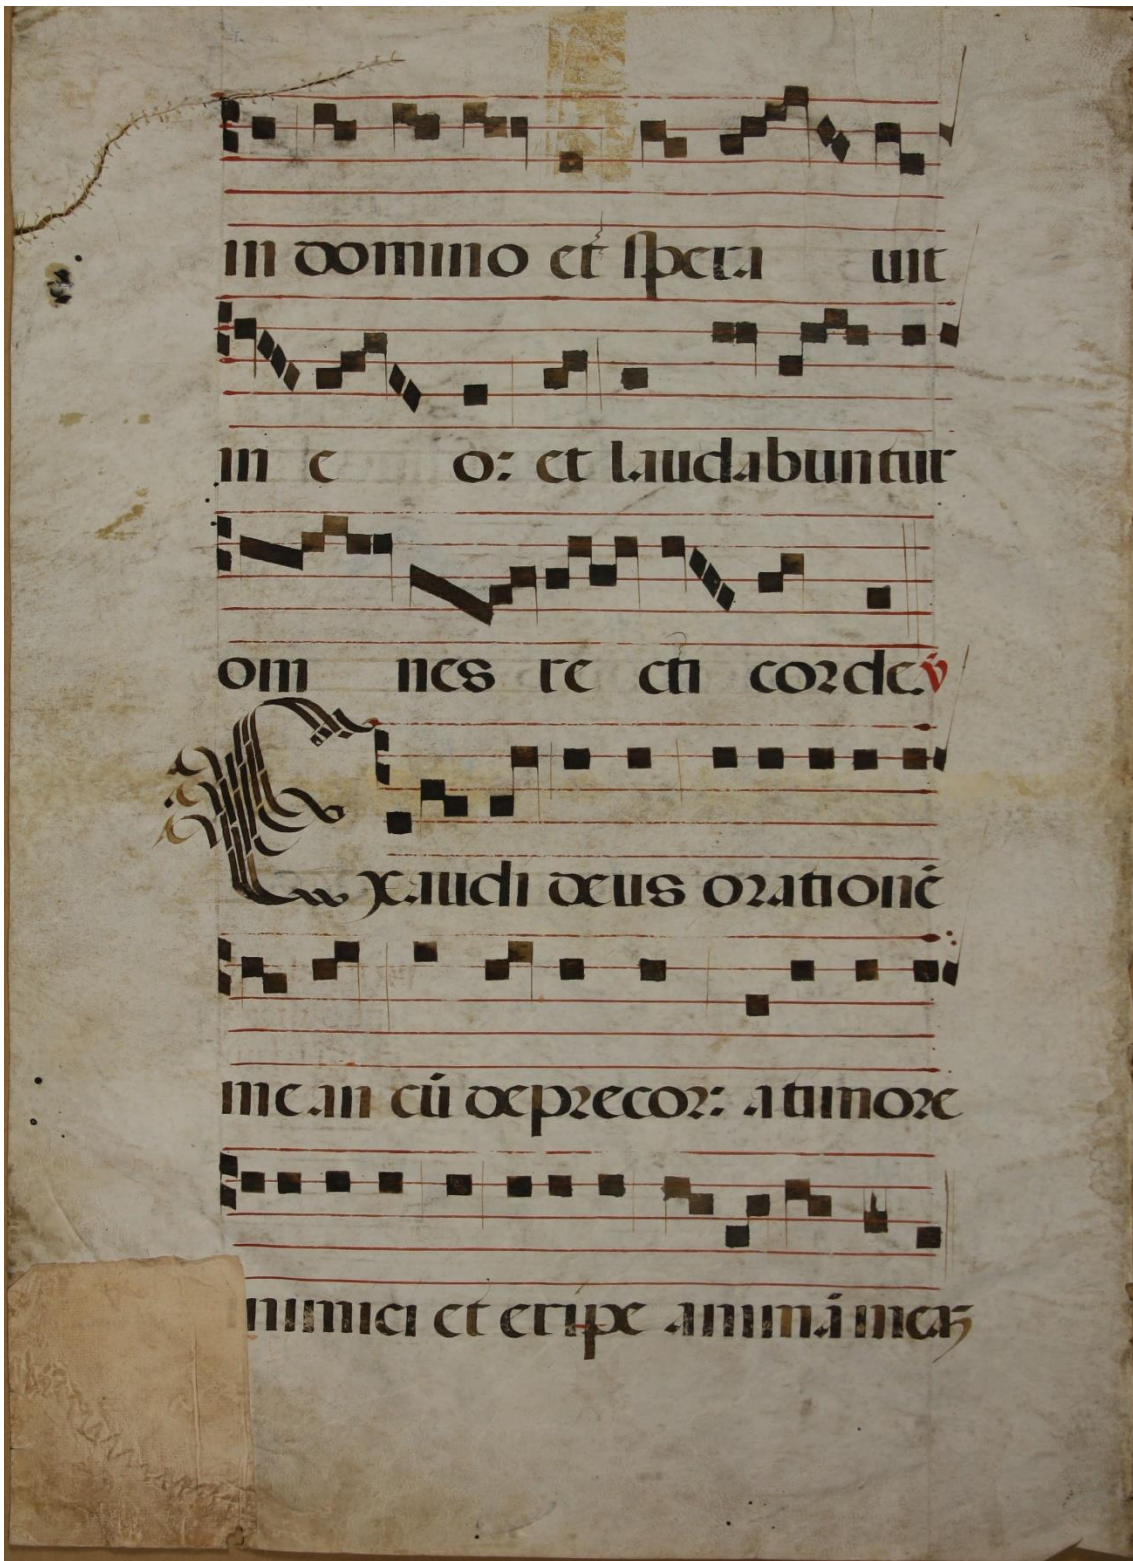 in domino et spera uit
in e o: et laudabuntur
om nes re cti corde. v̇
Exaudi deus orationē
mean cū deprecor: a timore
nimici et eripe animā meaʒ